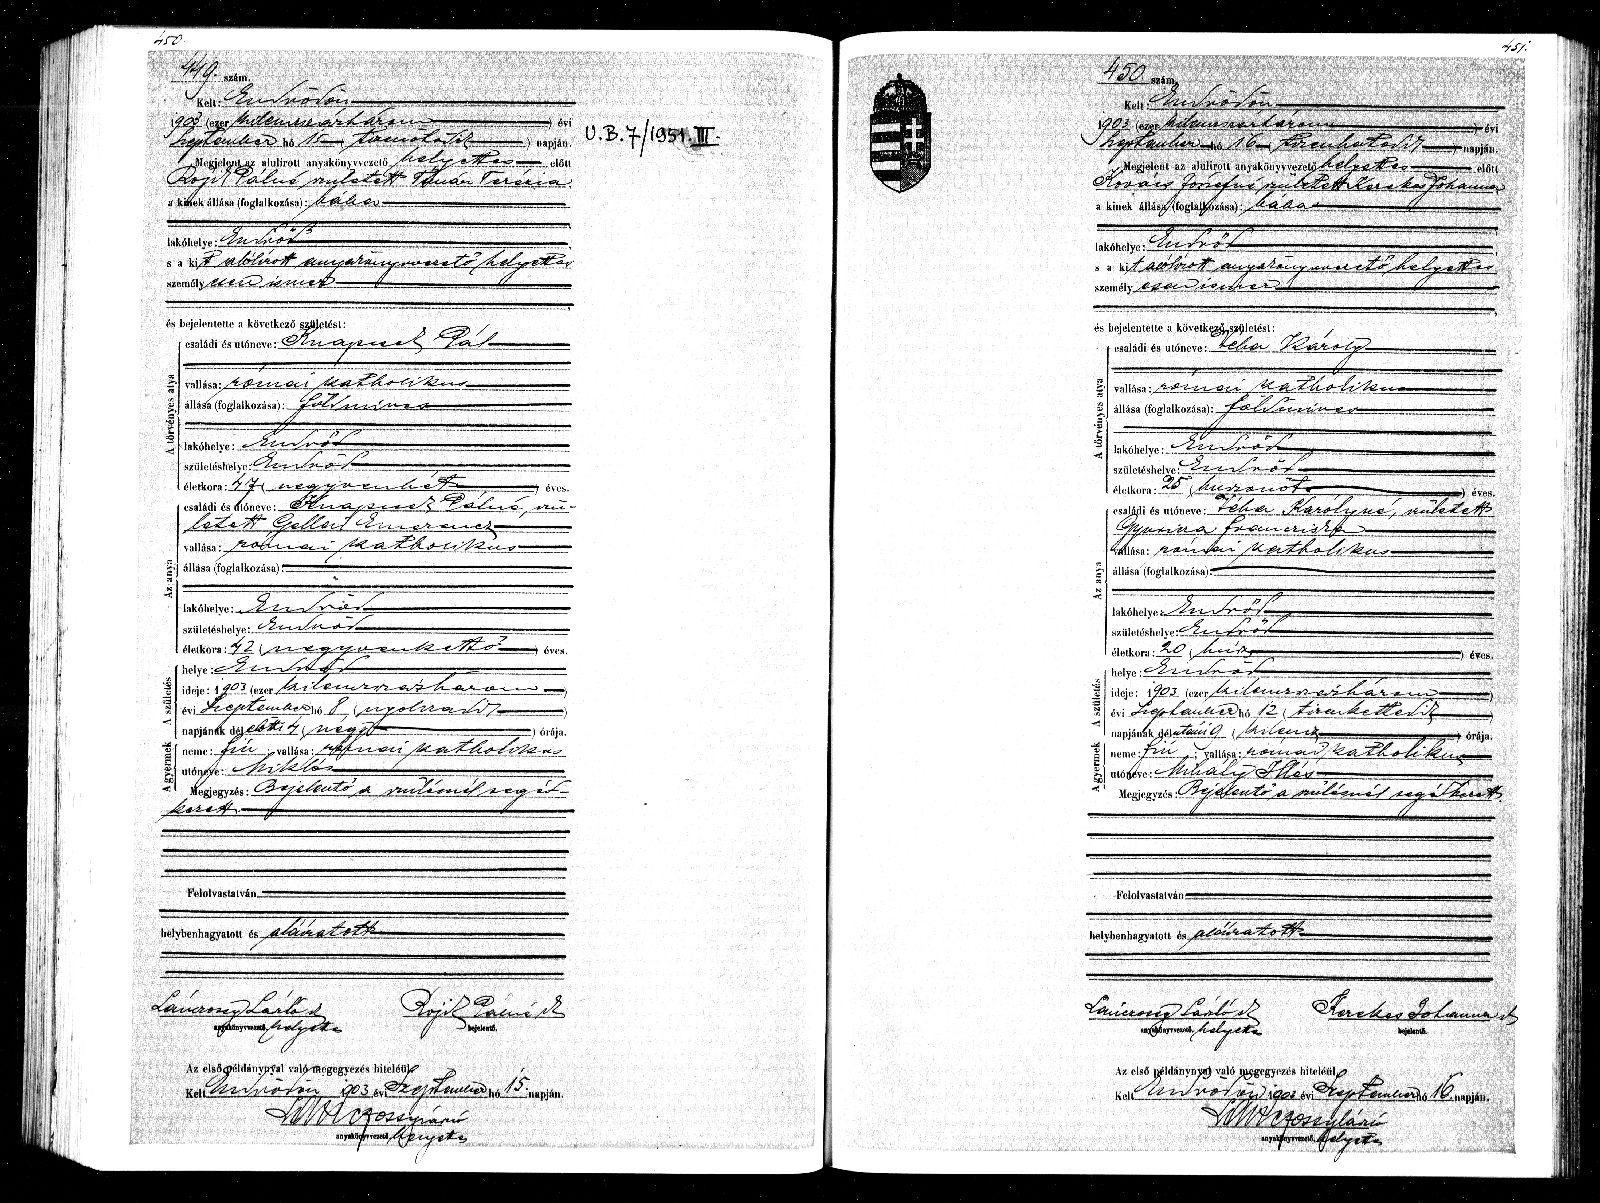 450.
449. szám.
Kelt: Endrődön
1903 (ezer kilenczszázhárom) évi
Szeptember hó 15 (tizenötödik) napján.
Megjelent az alulirott anyakönyvvezető helyettes előtt
Pálné született Terézia
a kinek állása (foglalkozása): bába
lakóhelye: Endrőd
s a kit alólirott anyakönyvvezető helyettes
személyesen ismer
és bejelentette a következő születést:
A törvényes atya
családi és utóneve: Knapcsek Pál
vallása: római katholikus
állása (foglalkozása): földmives
lakóhelye: Endrőd
születéshelye: Endrőd
életkora: 47 (negyvenhét) éves.
Az anya
családi és utóneve: Knapcsek Pálné, szü-
letett Gellai Emerencz
vallása: római katholikus
állása (foglalkozása):
lakóhelye: Endrőd
születéshelye: Endrőd
életkora: 42 (negyvenkettő) éves.
A születés
helye: Endrőd
ideje: 1903 (ezer kilenczszázhárom)
évi Szeptember hó 8 (nyolczadik)
napjának dél előtti 4 (négy) órája.
A gyermek
neme: fiú vallása: római katholikus
utóneve: Miklós
Megjegyzés: Bejelentő a szülésnél segéd-
kezett
Felolvastatván,
helybenhagyatott és aláiratott
László
Pálné
anyakönyvvezető, helyettes
bejelentő.
Az első példánynyal való megegyezés hiteléül
Kelt Endrődön 1903 évi Szeptember hó 15. napján.
László
anyakönyvvezető, helyettes
U.B.7/1951.III.
451.
450. szám.
Kelt: Endrődön
1903 (ezer kilenczszázhárom) évi
Szeptember hó 16 (tizenhatodik) napján.
Megjelent az alulirott anyakönyvvezető helyettes előtt
Kovács Józsefné született Kerekes Johanna
a kinek állása (foglalkozása): bába
lakóhelye: Endrőd
s a kit alólirott anyakönyvvezető helyettes
személyesen ismer
és bejelentette a következő születést:
A törvényes atya
családi és utóneve: Véha Károly
vallása: római katholikus
állása (foglalkozása): földmives
lakóhelye: Endrőd
születéshelye: Endrőd
életkora: 25 (huszonöt) éves.
Az anya
családi és utóneve: Véha Károlyné, született
Gyuricza Francziska
vallása: római katholikus
állása (foglalkozása):
lakóhelye: Endrőd
születéshelye: Endrőd
életkora: 20 (húsz) éves.
A születés
helye: Endrőd
ideje: 1903 (ezer kilenczszázhárom)
évi Szeptember hó 12 (tizenkettedik)
napjának dél utáni 9 (kilencz) órája.
A gyermek
neme: fiú; vallása: római katholikus
utóneve: Mihály Illés
Megjegyzés: Bejelentő a szülésnél segédkezett.
Felolvastatván
helybenhagyatott és aláiratott
László
Kerekes Johanna
anyakönyvvezető, helyettes
bejelentő.
Az első példánynyal való megegyezés hiteléül
Kelt Endrődön 1903 évi Szeptember hó 16. napján.
László
anyakönyvvezető, helyettes